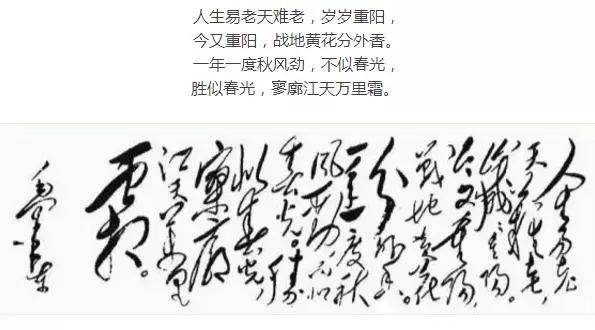 人生易老天难老，岁岁重阳，
今又重阳，战地黄花分外香。
一年一度秋风劲，不似春光，
胜似春光，寥廓江天万里霜。
人生易老
天难老，
歲歲重陽。
今又重陽，
戰地黄花
分外香。
一年一度秋
風勁，不似
春光。勝
似春光，
寥廓
江天万里
霜。
毛泽东